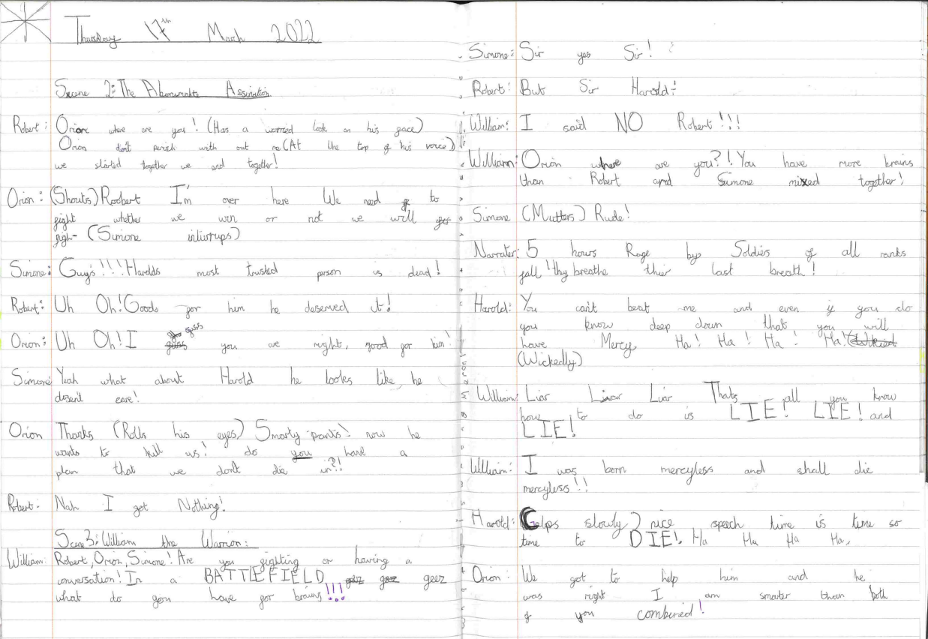 Thursday 17th March 2022
Scene 2: The Assination
Robert: Orion where are you! (Has a worried look on his face)
Orion don't perish with out me (At the top of his voice)
we started together we end together!
Orion: (Shouts) Roobert I'm over here We need to
fight whether we win or not we will
figh- (Simone intiurups)
Simone: Guy's!!! Harolds most trusted person is dead!
Robert: Uh Oh! Good for him he deserved it!
Orion: Uh Oh! I you we right, good for him!
Simone Yeah what about Harold he lookes like he
dosent care!
Orion Thanks (Rolls his eyes) Smarty pants! now he
wants to kill us! do you have a
plan that we don't die in?!!
Robert: Nah I got Nothing!
Scene 3: William the Warrior:
William: Robert, Orion, Simone! Are you fighting or having a
conversation! In a BATTLEFIELD geez geez
what do you have for brains!!!
Simone: Sir yes Sir!
Robert: But Sir Harold-
William: I said NO Robert!!!
William: Orion where are you?! You have more brains
than Robert and Simone mixed together!
Simone (Mutters) Rude!
Narrater: 5 hours Rage by Soldies of all ranks
fall! thy breathe thier last breath!
Harold: You can't beat me and even if you do
you know deep down that you will
have Mercy Ha! Ha! Ha! Ha!
(Wickedly)
William: Liar Liar Liar Thats all you know
how to do is LIE! LIE! and
LIE!
William: I was born mercyless and shall die
mercyless!!
Harold: slowly) nice speech time is time so
time to DIE! Ha Ha Ha Ha,
Orion: We got to help him and he
was right I am smater than both
of you combined!